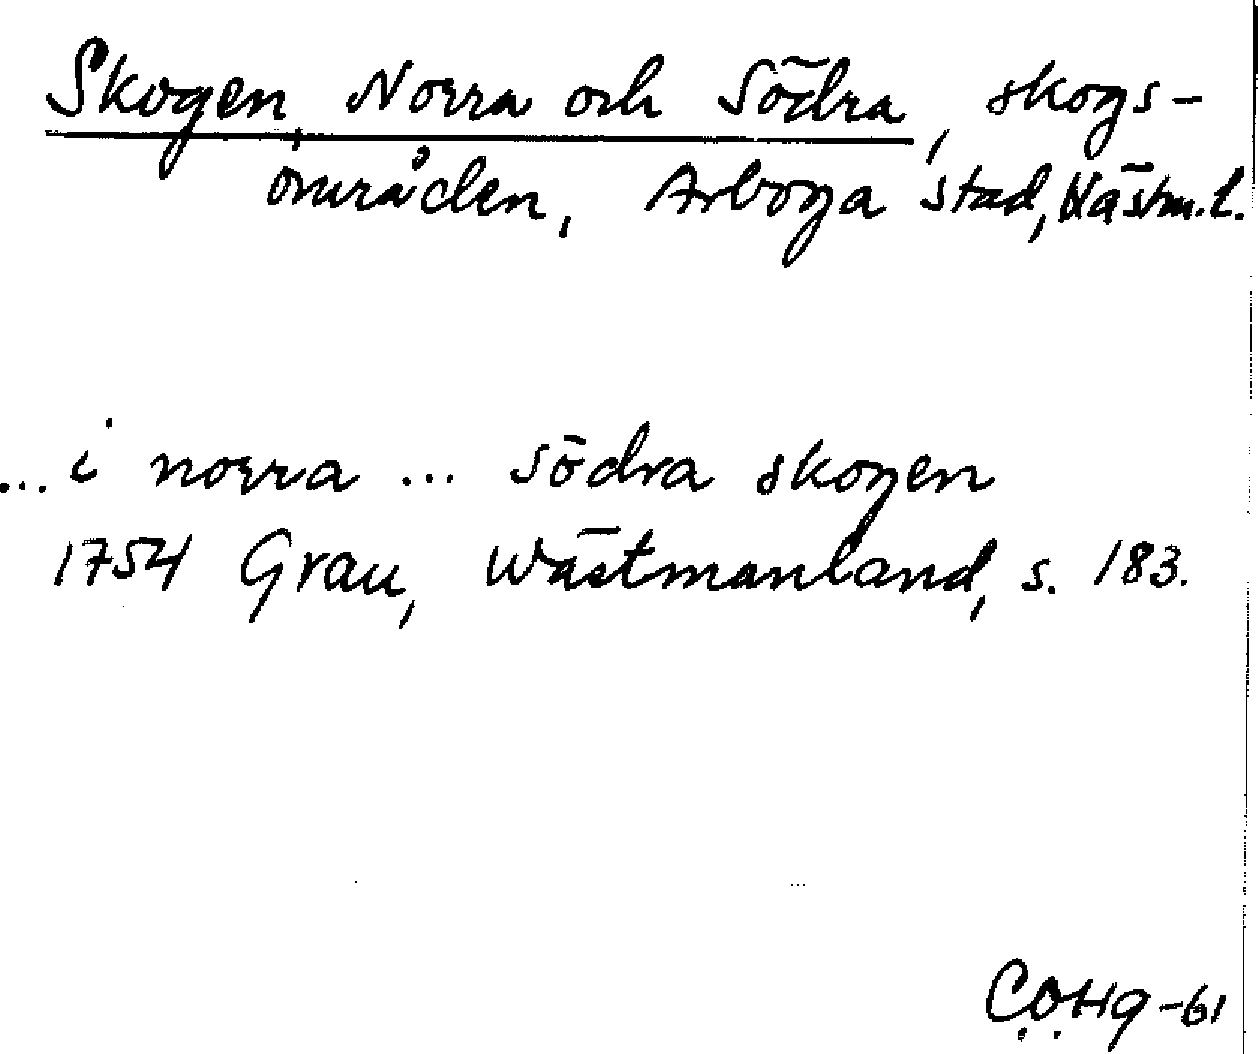 Skogen, Norra och Södra, skogs-
områden, Arboga stad, Västm. l.
... i norra ... södra skogen
1754 Grau, Wästmanland, s. 183.
C.O.Hg -61